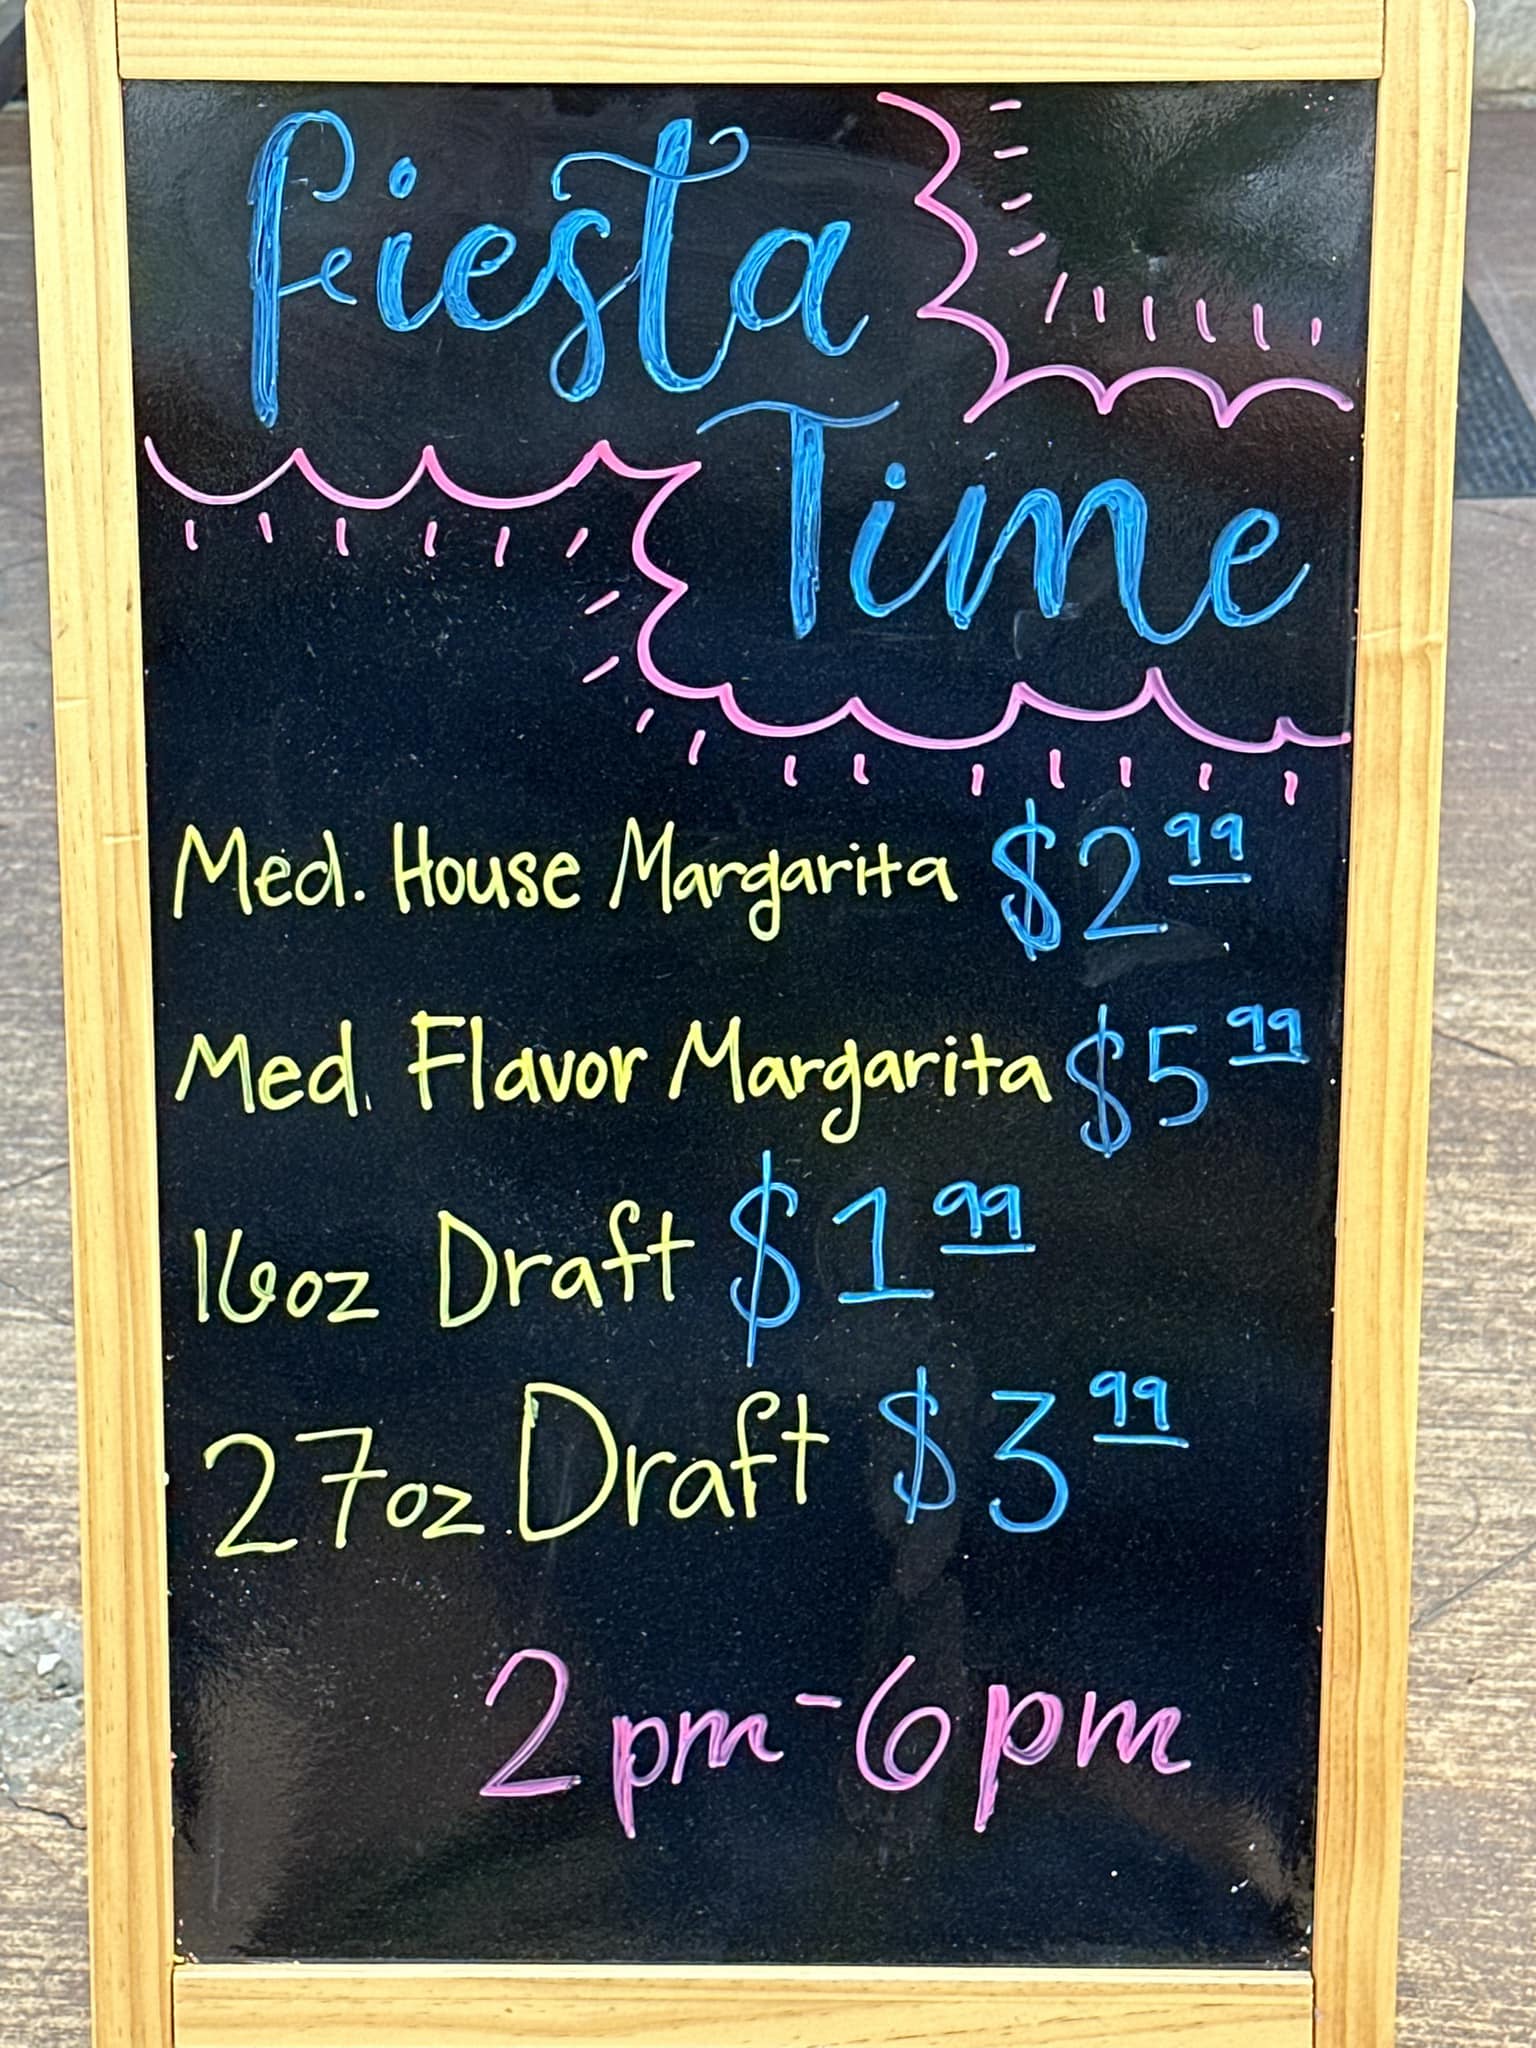 Fiesta
Time
Med. House Margarita $2.99
Med. Flavor Margarita $5.99
16oz Draft $1.99
27oz Draft $3.99
2pm-6pm